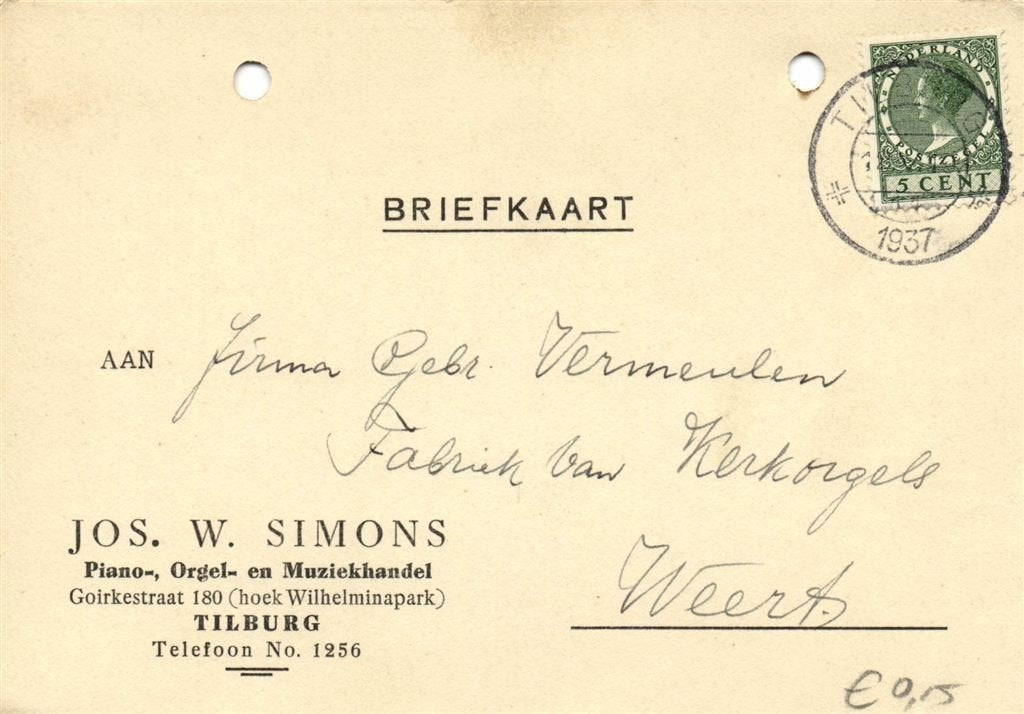 NEDERLAND
POSTZEGEL
5 CENT
1937
BRIEFKAART
AAN Firma Gebr. Vermeulen
Fabriek van Kerkorgels
Weert
JOS. W. SIMONS
Piano-, Orgel- en Muziekhandel
Goirkestraat 180 (hoek Wilhelminapark)
TILBURG
Telefoon No. 1256
€ 0,15